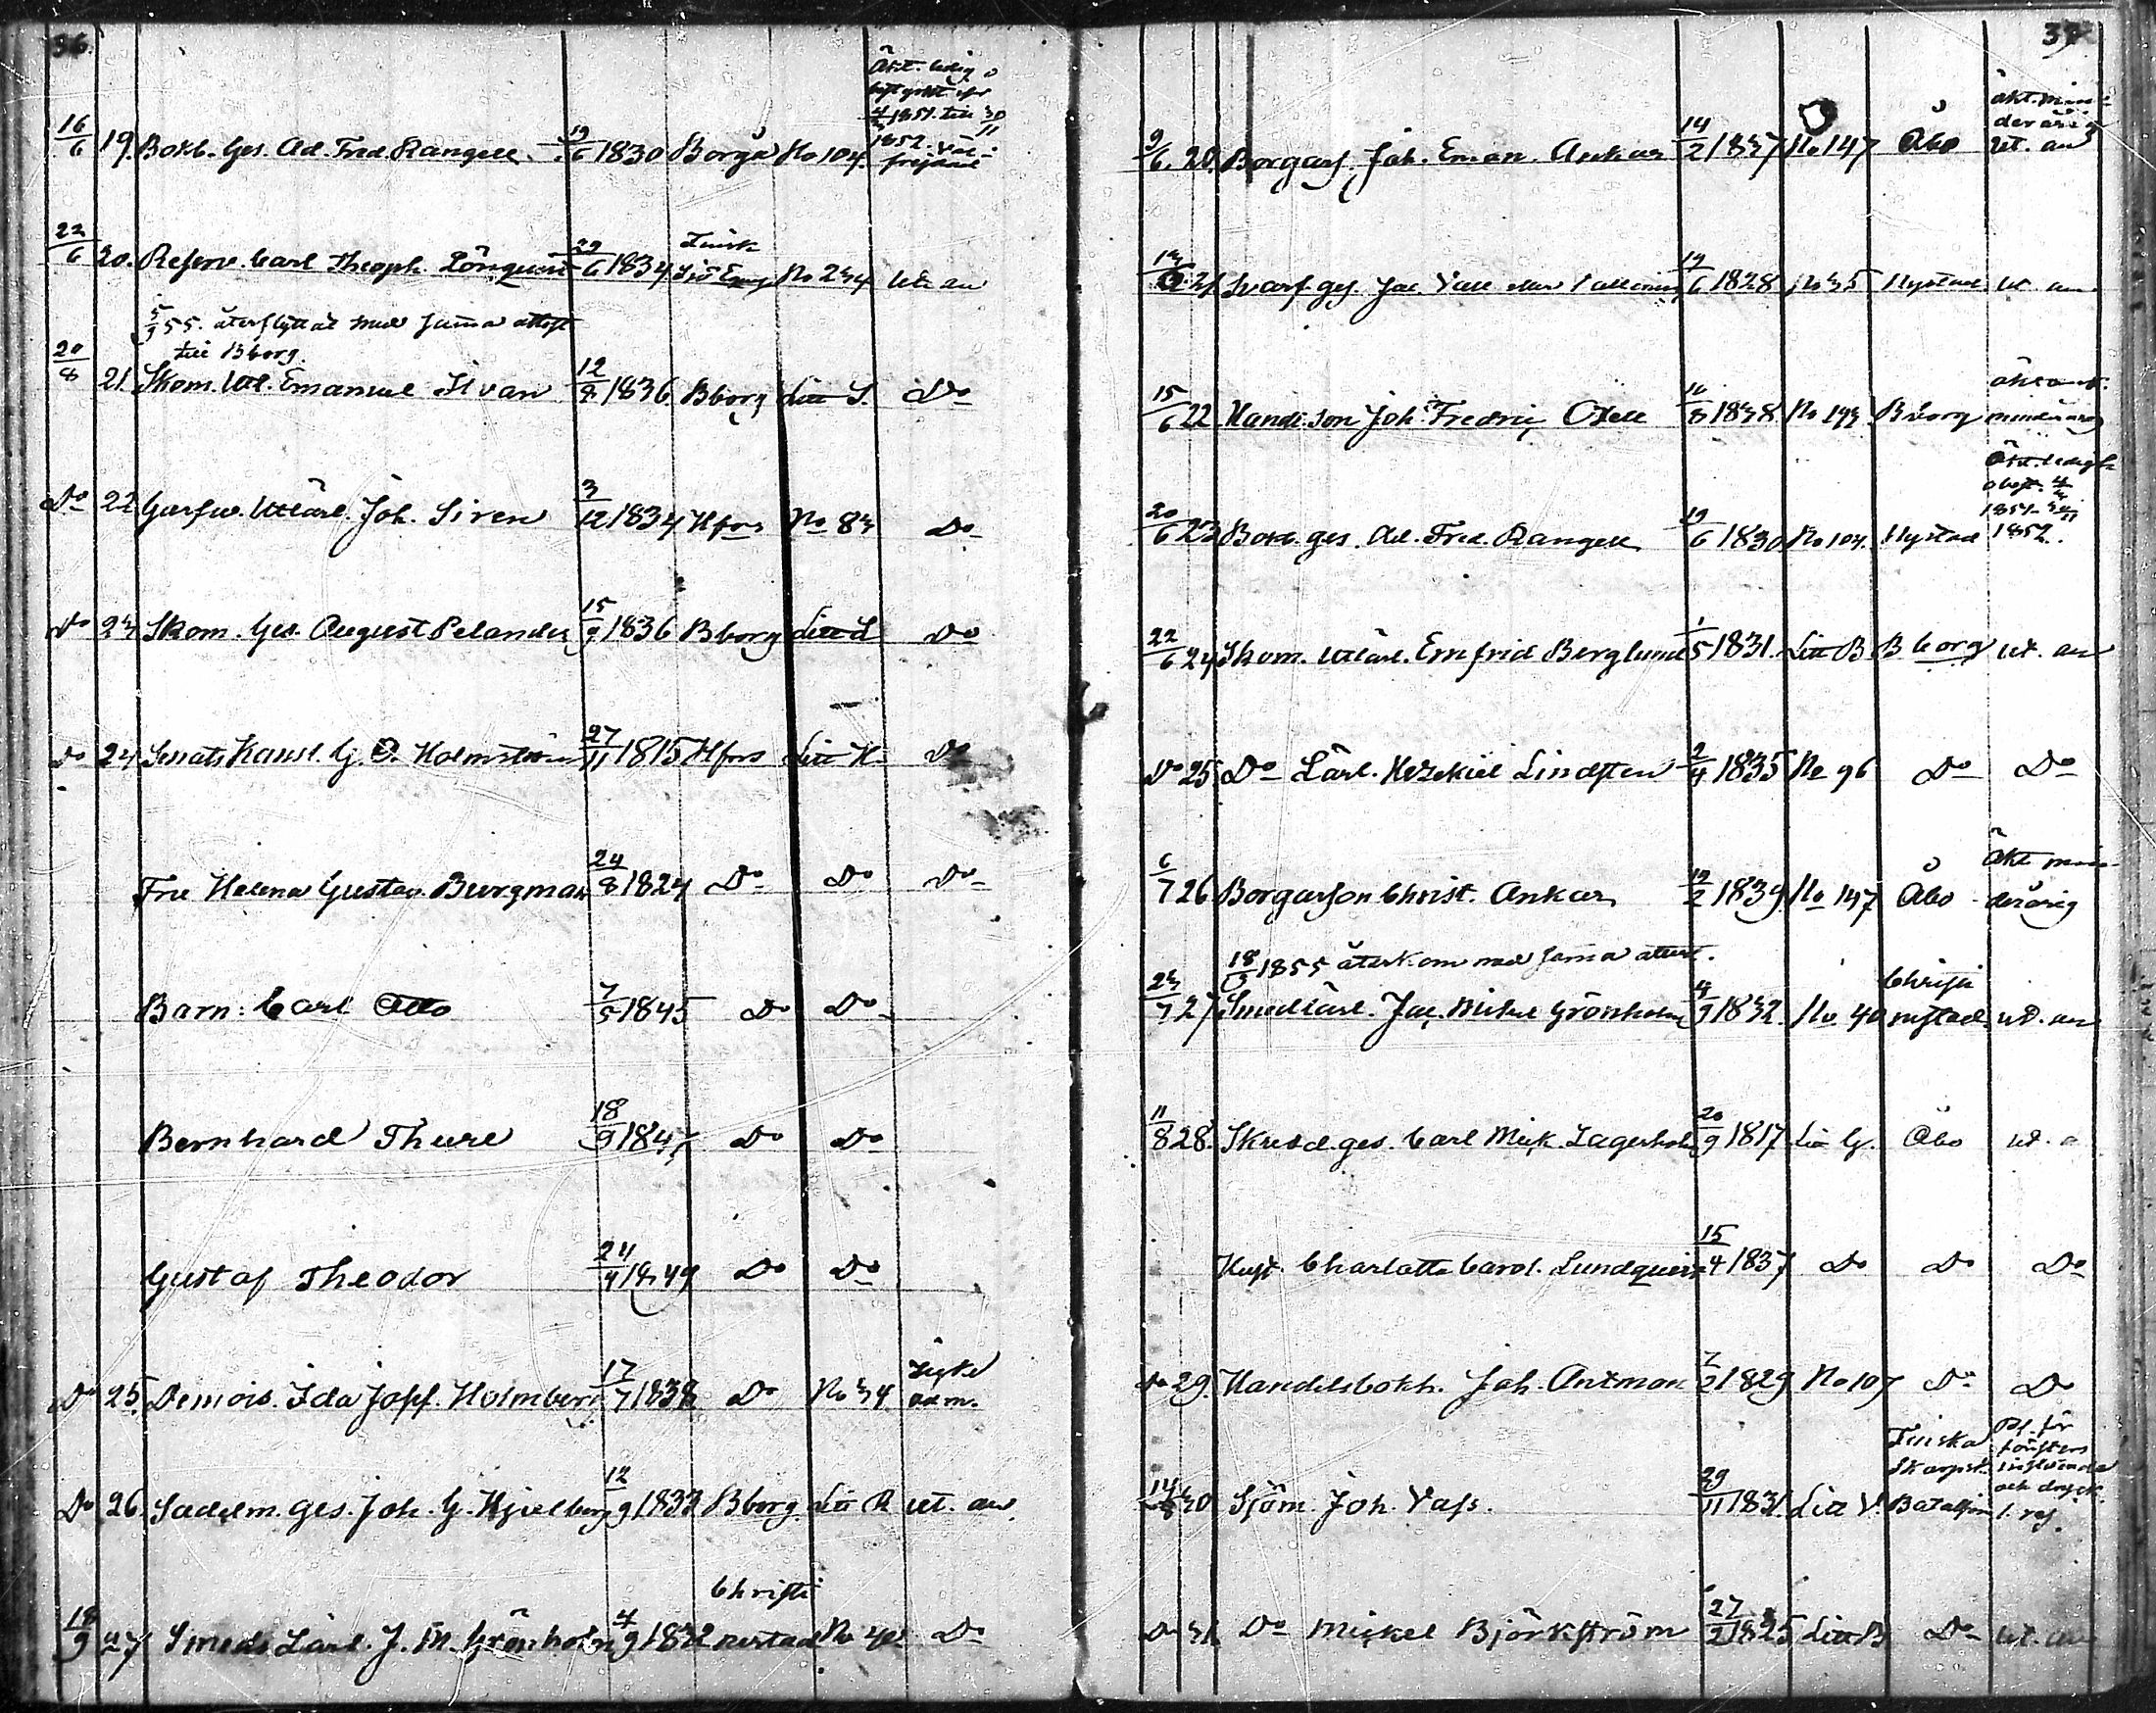 36.
Äkt. ledig o
1851 till 30/11
16/6 19. Bokb. Ges. Ad. Fred. Rangell 19/6 1830 Borgå No 104. 1852. väl-
frejdad
22/6 20. Reserv. Carl Theoph. Lönquist 29/6 1834 Finsk Sjö Eq No 234 ut. an
5/9 55. återflyttat med samma attest
till Bborg.
20/8 21. Skom. Utl. Emanuel Sivan 12/2 1836 Bborg Litt S. Do
Do 22 Garfv. Utlärl. Joh. Siren 3/12 1834 Hfors No 83 Do
Do 23 Skom. Ges. August Pelander 15/9 1836 Bborg Litt L Do
Do 24 Senats Kansl. G. O. Holmström 27/11 1815 Hfors Litt H. Do
Fru Helena Gustav. Burgman 24/8 1824 Do Do Do
Barn: Carl Otto 7/5 1845 Do Do
Bernhard Thure 18/9 1847 Do Do
Gustaf Theodor 24/4 1849 Do Do
Do 25. Demois. Ida Josf. Holmberg 17/7 1838 Do No 34
Do 26. Sadelm. ges. Joh. G. Kjelberg 12/9 1833 Bborg Litt R ut. an.
18/9 27 Smeds Lärl. J. M. Grönholm 4/9 1832 Christinestad No 40 Do
37
9/6. 20. Borgars. Joh. Eman. Ankar 14/2 1837 No 147 Åbo äkt. minderårig ut. an
21 Svarf. ges. Jac. Vall eller Vallenius 19/6 1828 No 35 Nystad ut. an.
15/6 22. Handl. son Joh. Fredric Oxell 16/8 1838 No 193 Bborg minderårig
20/6 23 Bokb. ges. Ad. Fred. Rangell 19/6 1830 No 104. Nystad Äkt. ledig 1851 1852.
22/6 24 Skom. Utlärl. Emfrid Berglund 1/5 1831. Litt B Bborg ut. an
Do 25. Do Lärl. Hezekiel Lindsten 2/4 1835 No 96 Do Do
6/7 26 Borgarson Christ. Ankar 19/2 1839. No 147 Åbo Äkt minderårig
18/9 1855 återkom med samma attest.
23/7 27 Smedlärl. Jac. Mikel Grönholm 4/9 1832. No 40 Christinestad ut. an
11/8 28. Skrädd. ges. Carl Mick. Lagerholm 20/9 1817. Litt G. Åbo ut. a
Hust. Charlotta Carol. Lundqvist 15/4 1837 Do Do Do
Do 29. Handelsbokh. Joh. Antman 7/2 1829 No 107 Do Do
14/8 30 Sjöm. Joh. Vass. 29/11 1831. Litt V. Finska Skarpsk. Bataljon för fönsters inslående och dryck.
Do 31 Do Mickel Björkström 27/2 1825 Litt B Do ut. an